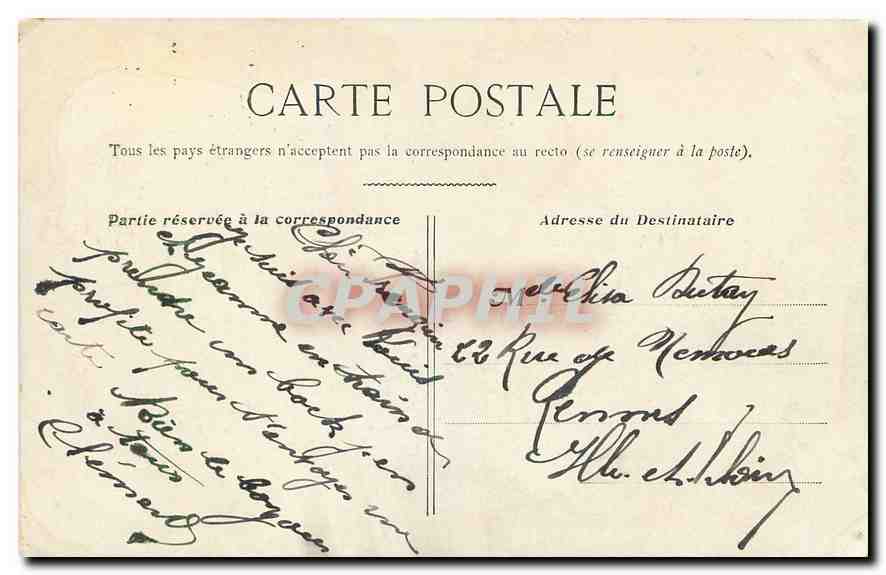 CARTE POSTALE
Tous les pays étrangers n'acceptent pas la correspondance au recto (se renseigner à la poste).
Partie réservée à la correspondance
Chère
je suis avec Louis
et Jeanne en train de
prendre un bock j'en
profite pour t'envoyer une
carte
à tous
Adresse du Destinataire
Melle Elisa Dutay
22 Rue de Nemours
Rennes
Ille-et-Vilaine
CPAPHIL